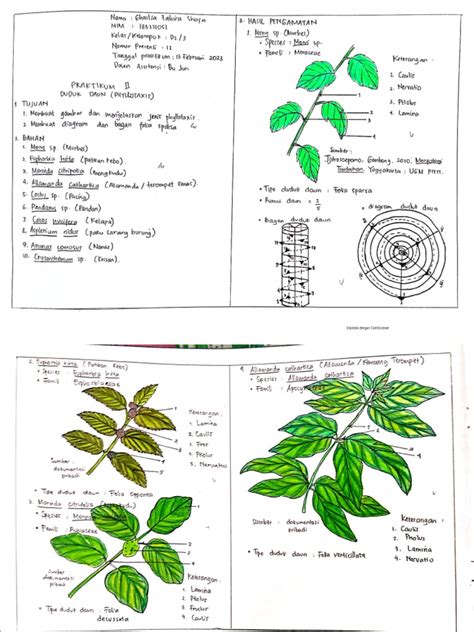 Nama : Ghaitsa Zahira Shofa
NIM :
Kelas / Kelompok : D2 / 3
Nomor Presensi : 12
Tanggal praktikum : 13 Februari 2023
Dosen Asistensi : Bu Jun
PRAKTIKUM II
DUDUK DAUN (PHYLLOTAXIS)
1. TUJUAN
1. Membuat gambar dan menjelaskan jenis phyllotaxis
2. Membuat diagram dan bagan folia sparsa
2. BAHAN
1. Morus sp (Murbei)
2. Euphorbia hirta (patikan kebo)
3. Morinda citrifolia (mengkudu)
4. Allamanda cathartica (Allamanda / terompet emas)
5. Costus sp (Pacing)
6. Pandanus sp (Pandan)
7. Cocos nucifera (Kelapa)
8. Asplenium nidus (paku sarang burung)
9. Ananas comosus (Nanas)
10. Chrysanthemum sp (Krisan).
3. HASIL PENGAMATAN
1. Morus sp (Murbei)
• Species : Morus sp.
• Famili : Moraceae
Keterangan :
1. Caulis
2. Nervatio
3. Petiolus
4. Lamina
1
2
3
4
Sumber :
Tjitrosoepomo, Gembong. 2010.
Tumbuhan. Yogyakarta : UGM Press.
• Tipe duduk daun : Folia sparsa
• Rumus daun =
• Bagan duduk daun
• diagram duduk daun
Dipindai dengan CamScanner
2. Euphorbia hirta (Patikan Kebo)
• Species : Euphorbia hirta
• Famili : Euphorbiaceae
Keterangan :
1. Lamina
2. Caulis
3. Flor
4. Petiolus
5. Nervatio
Sumber :
dokumentasi
pribadi
• Tipe duduk daun : Folia opposita
3. Morinda citrifolia (mengkudu)
• Species : Morinda
• Famili : Rubiaceae
Keterangan :
1. Lamina
2. Petiolus
3. Fructus
4. Caulis
Sumber
dokumentasi
pribadi
• Tipe duduk daun : Folia
decussata
4. Allamanda cathartica (Allamanda / Kembang Terompet)
• Species : Allamanda cathartica
• Famili : Apocynaceae
1
2
3
4
Sumber : dokumentasi
pribadi
Keterangan :
1. Caulis
2. Petiolus
3. Lamina
4. Nervatio
• Tipe duduk daun : Folia verticillata